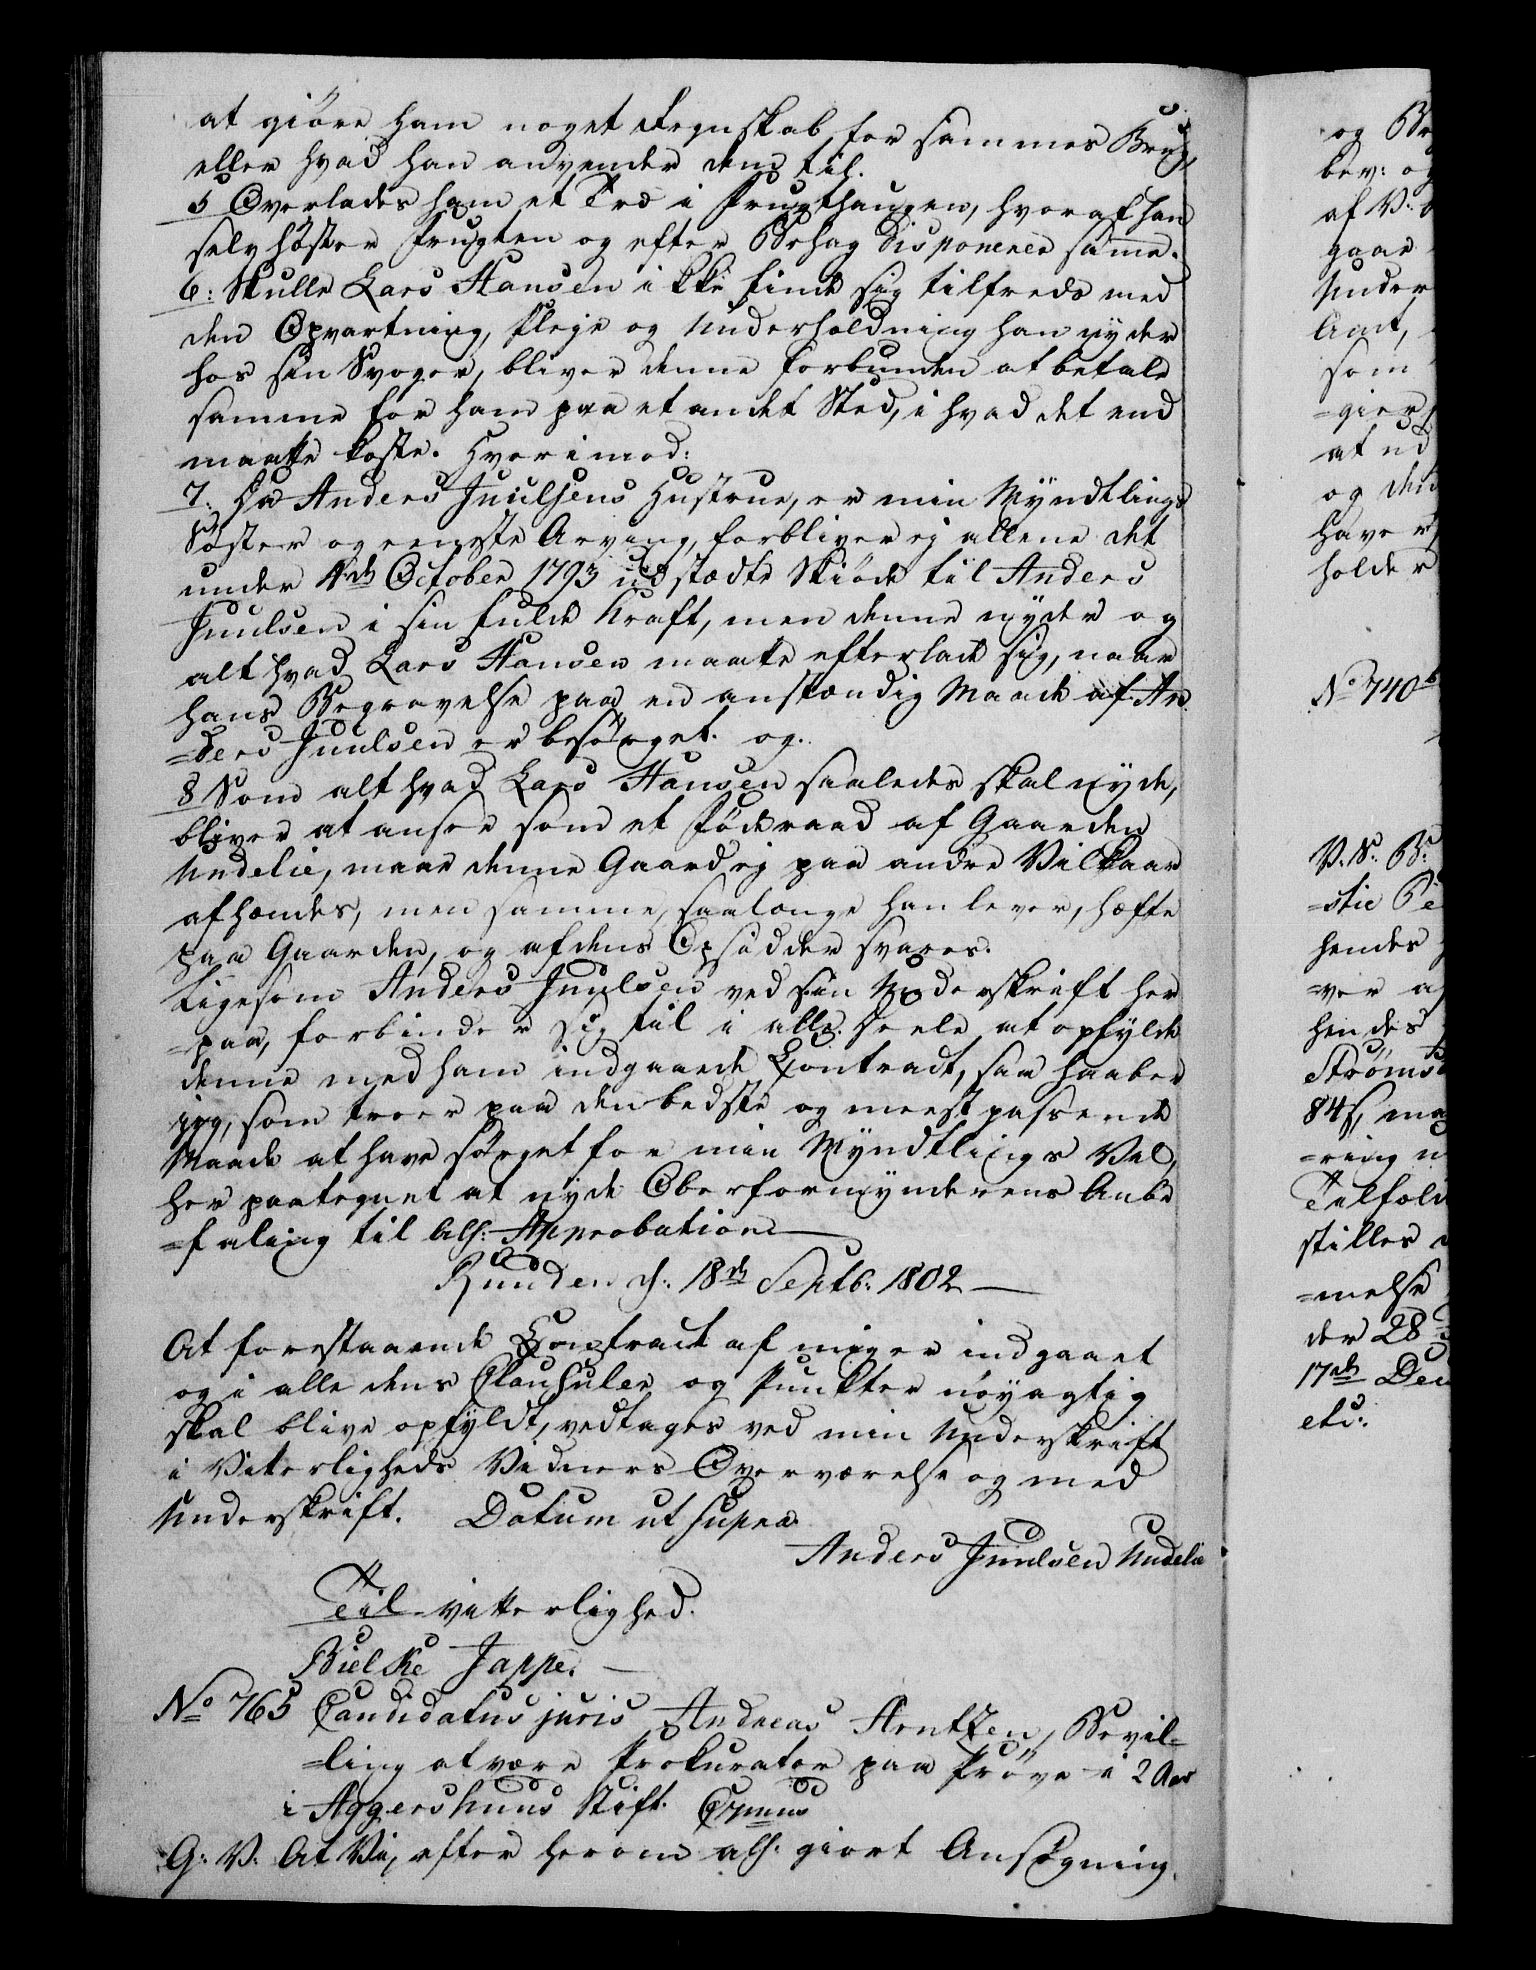 at giöre ham noget Regnskab for sammes Brug,
eller hvad han anvender dem til.
5 Overlades ham et Træ i Frugthaugen, hvoraf han
selv höster Frugten og efter Behag disponerer samme.
6: Skulle Lars Hansen ikke finde sig tilfreds med
den Opvartning, Pleje og Underholdning han nyder
hos sin Svoger, bliver denne forbunden at betale
samme for ham paa et andet Sted, i hvad det end
maatte koste. Hvorimod:
7: Da Anders Juulsens Hustrue, er min Myndtlings
Söster og eeneste Arving, forbliver ej allene det
under 4de October 1793 udstædte Skiöde til Anders
Juulsen i sin fulde Kraft, men denne nyder og
alt hvad Lars Hansen maatte efterlade sig, naar
hans Begravelse paa en anstændig Maade af An
=ders Juulsen er besörget. og.
8 Som alt hvad Lars Hansen saaledes skal nyde,
bliver at ansee som et Föderaad af Gaarden
Undelie, maae denne Gaard ej paa andre Vilkaar
afhændes, men samme, saalænge han lever, hæfte
paa Gaarden, og af dens Opsidder svares.
Ligesom Anders Juulsen ved sin Underskrift her
=paa, forbinder sig til i alle Deele at opfylde
denne med ham indgaaede Contract, saa haaber
jeg, som troer paa den bedste og meest passende
Maade at have sörget for min Myndtlings Vel,
her paategnet at nyde Oberformynderens Anbe
=faling til all: Approbation
Runden d: 18de Septb: 1802
At forestaaende Contract af mig er indgaaet
og i alle dens Clausuler og Punkter nöyagtig
skal blive opfyldt, vedtages ved min Underskrift
i Vitterligheds Vidners Overværelse og med
Underskrift. Datum ut supra
Anders Juulsen Undelie
Til vitterlighed.
Bielke Jappe.
No 765 Candidatus juris Andreas Arntzen, Bevil=
=ling at være Prokurator paa Pröve i 2 Aar
i Aggershuus Stift.
G: V: At Vi, efter herom all: giort Ansögning,
og
bev:
af V:
gaar
Under
Amt,
som
=gier
at ud
og
have
holder
No 740
V. S. B:
=stie
hendes
=ver
hendes
Ströms
84
=ring
Tilfæld
stilles
=melse
der 28
17de Dec
etc: